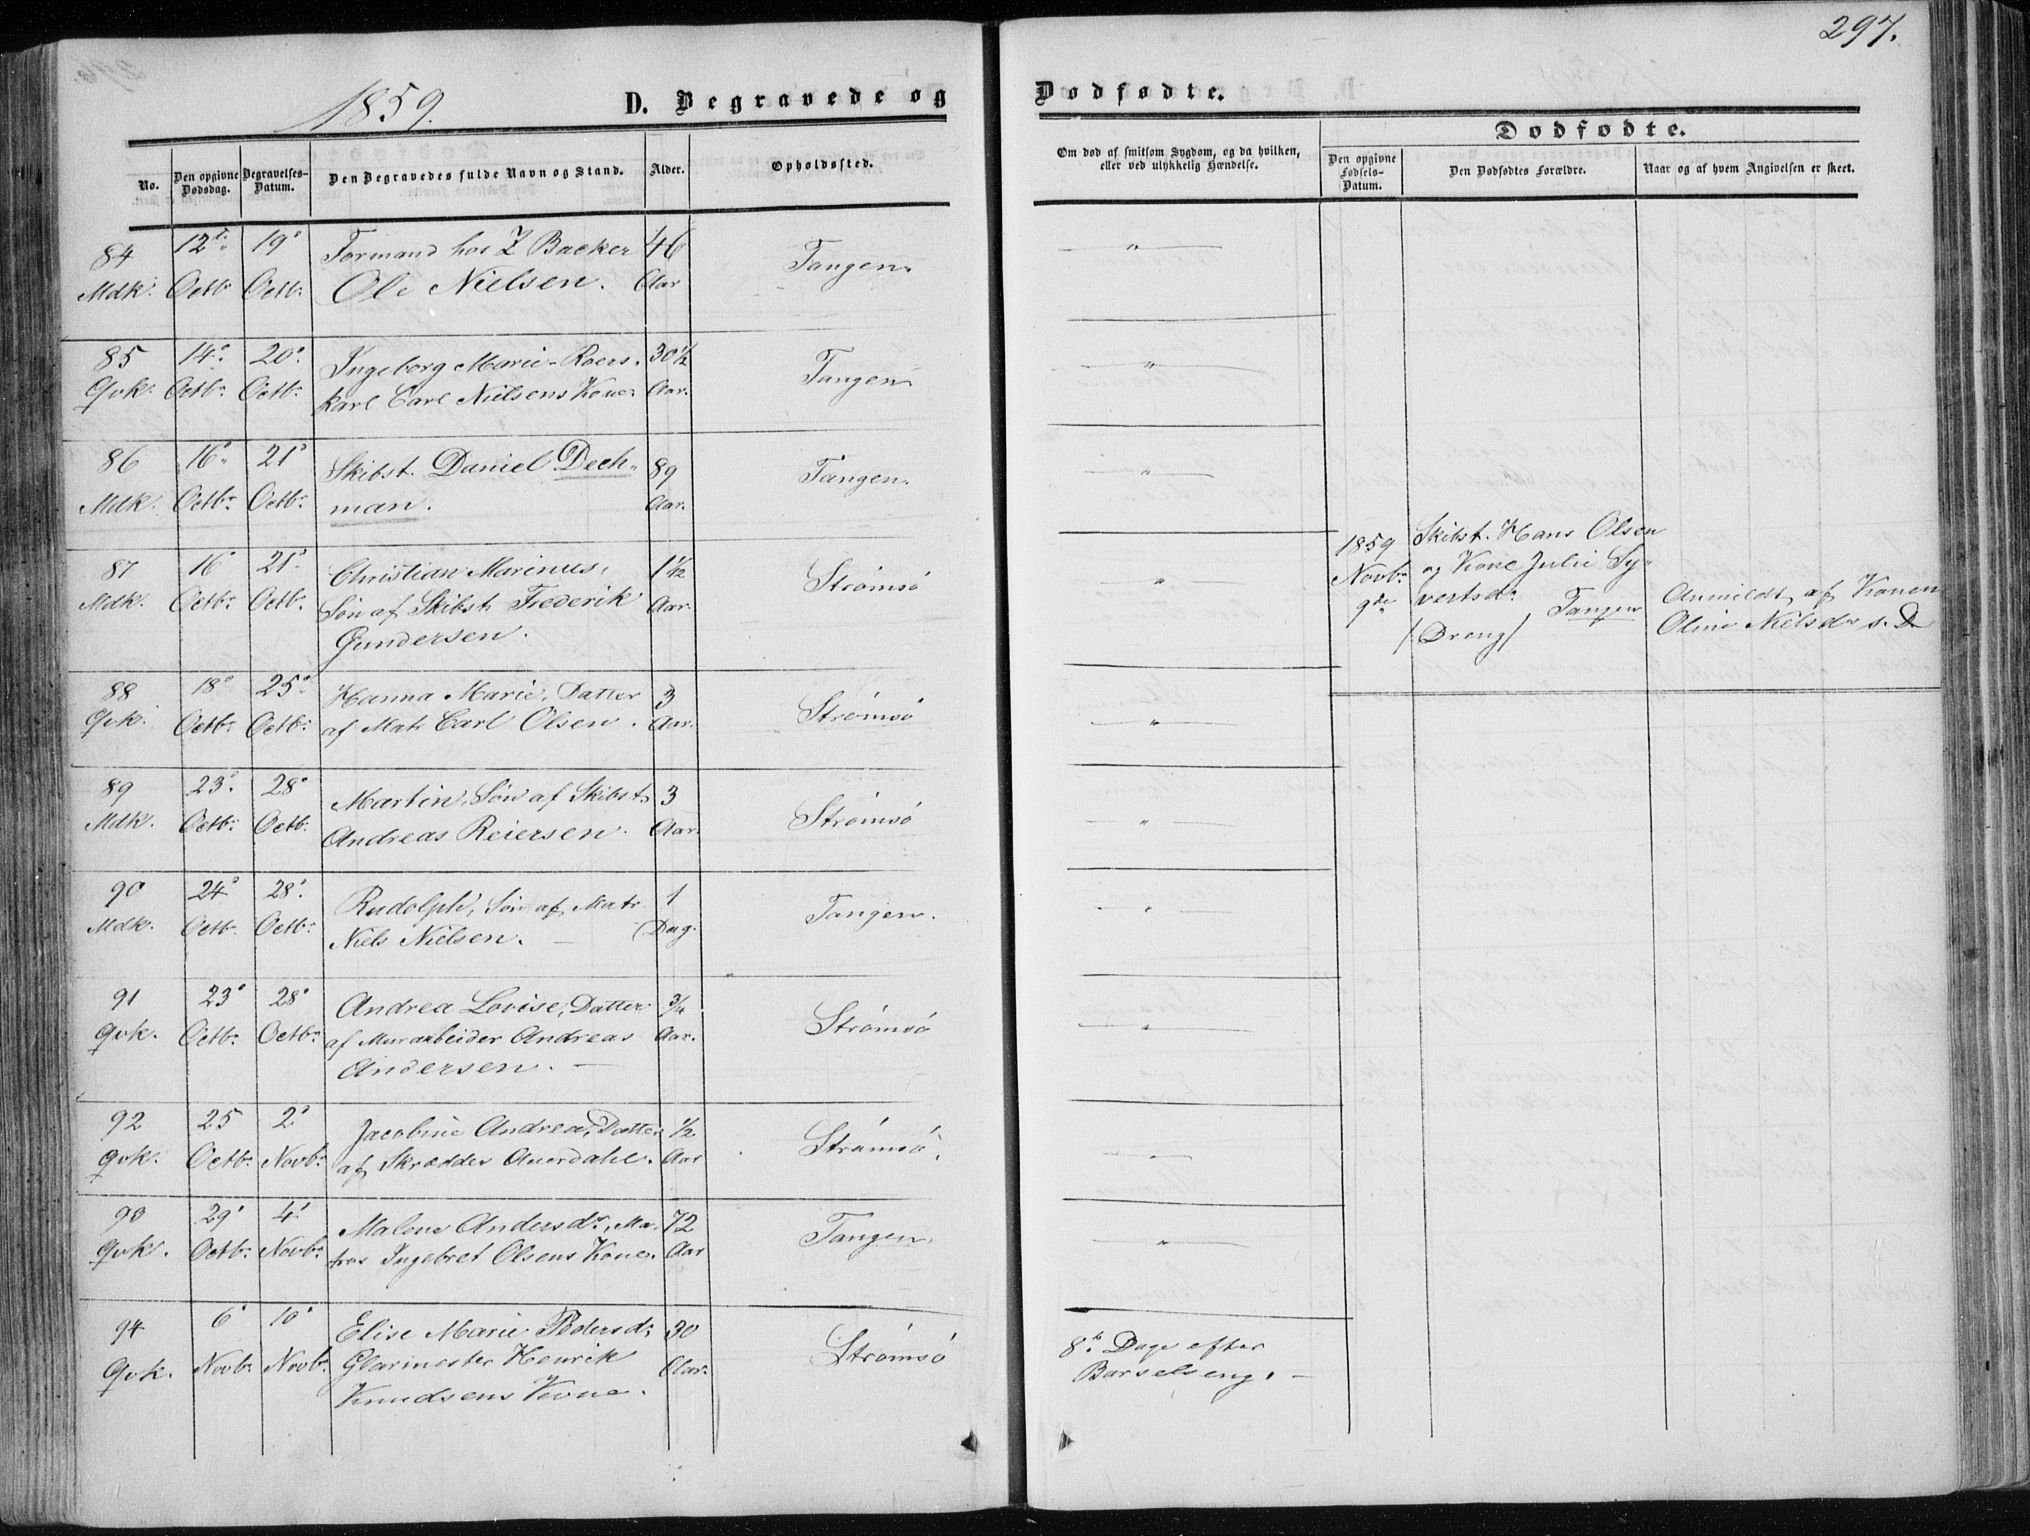 297.
1859.
D. Begravede og
Dødfødte.
No.
Den opgivne Dødsdag.
Begravelses-Datum.
Den Begravedes fulde Navn og Stand.
Alder.
Opholdssted.
Om død af smitsom Sygdom, og da hvilken, eller ved ulykkelig Hændelse.
Dødfødte.
Den opgivne Fødsels-Datum.
Den Dødfødtes Forældre.
Naar og af hvem Angivelsen er skeet.
84 12te 19 Formand hos Z Backer 46 Tangen. "
Mdk. Octbr. Octbr. Ole Nielsen. Aar
85 14. 20. Ingeborg Marie Roers- 30½ Tangen "
Qvk. Octbr. Octbr. karl Carl Nielsens Kone. Aar.
86 16. 21 Skibst. Daniel Dech- 89 Tangen. "
Mdk. Octbr. Octbr. man. Aar.
87 16 21. Christian Marinus, 1½ Strømsø "
Mdk. Octbr. Octbr. Søn af Skibst. Frederik Aar.
Gundersen.
1859 Skibst. Hans Olsen
Novbr. og Kone Julie Sy-
9de vertsdr. Tangen
(Dreng)
Anmeldt af Konen
Oline Nielsdr s. D
88 18 25. Hanna Marie, Datter 3 Strømsø "
Qvk. Octbr. Octbr. af Matr. Carl Olsen. Aar.
89 23. 28 Martin, Søn af Skibst. 3 Strømsø "
Mdk. Octbr. Octbr. Andreas Reiersen. Aar.
90 24 28. Rudolph, Søn af Matr. 1 Tangen. "
Mdk. Octbr. Octbr. Niels Nielsen. — Dag.
91 23 28 Andrea Lovise, Datter ¾ Strømsø "
Qvk. Octbr. Octbr. af Murarbeider Andreas Aar.
Andersen. —
92 25 2 Jacobine Andrea, Datter ½ Strømsø. "
Qvk. Octbr. Novbr. af Skrædder Auerdahl. Aar
93 29 4 Malene Andersdr., Ma- 72 Tangen. "
Qvk. Octbr. Novbr. tros Ingebret Olsens Kone. Aar
94 6 10 Elise Marie Pedersdr. 30 Strømsø 8te Dage efter
Qvk. Novbr. Novbr. Glarmester Henrik Aar. Barselseng. —
Knudsens Kone.